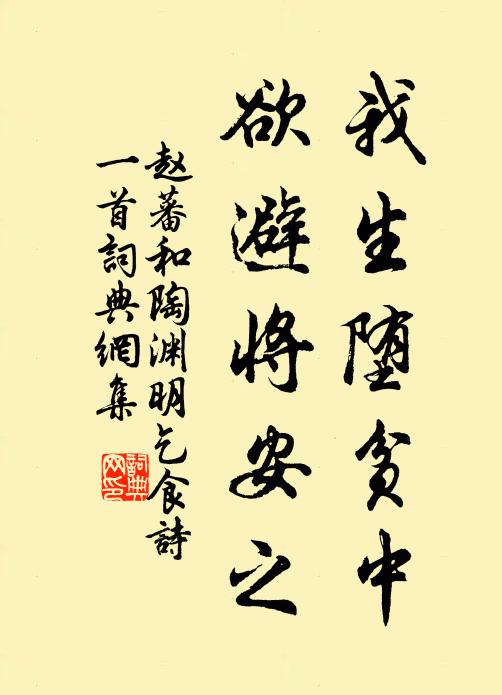 我生堕贫中
欲避將安之
赵蕃和陶渊明乞食詩
一首詞典網集
詞典
网印